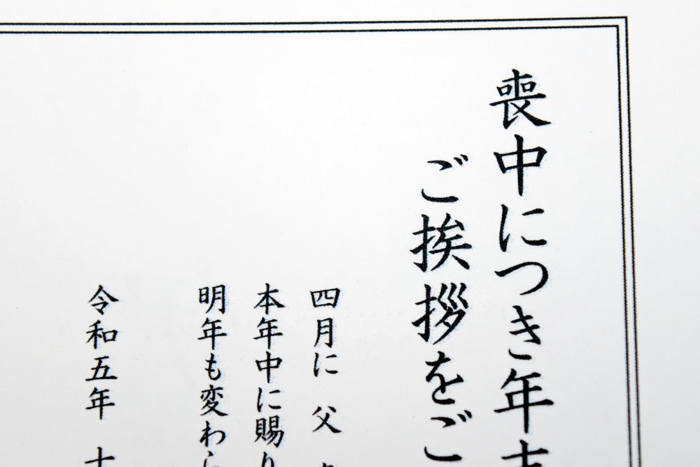 喪中につき年末
ご挨拶をご
四月に 父
本年中に賜り
明年も変わら
令和五年 十